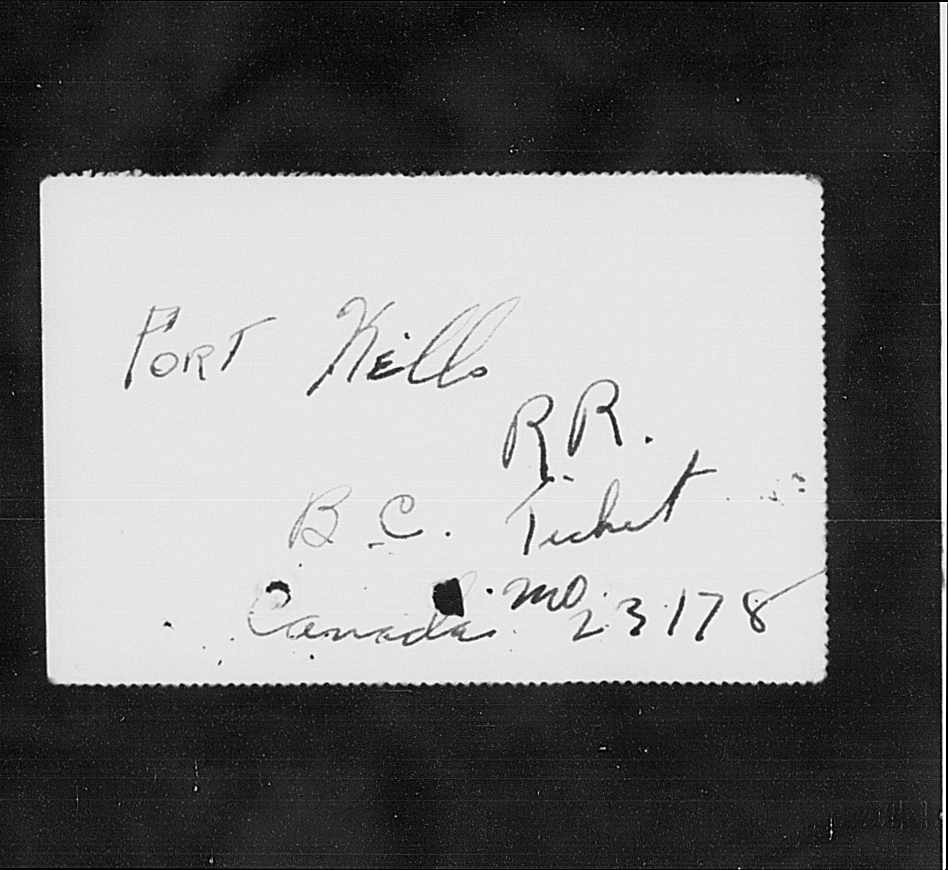 PORT Kells
RR.
B.C. Ticket
Canada. no.
23178